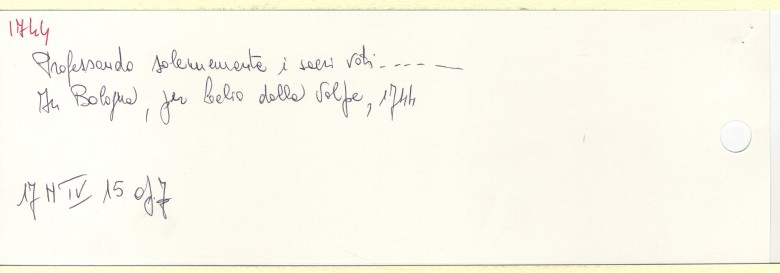 1744
Professando solennemente i sacri voti ---- —
In Bologna, per Lelio dalla Volpe, 1744
17 H IV 15 of. 7